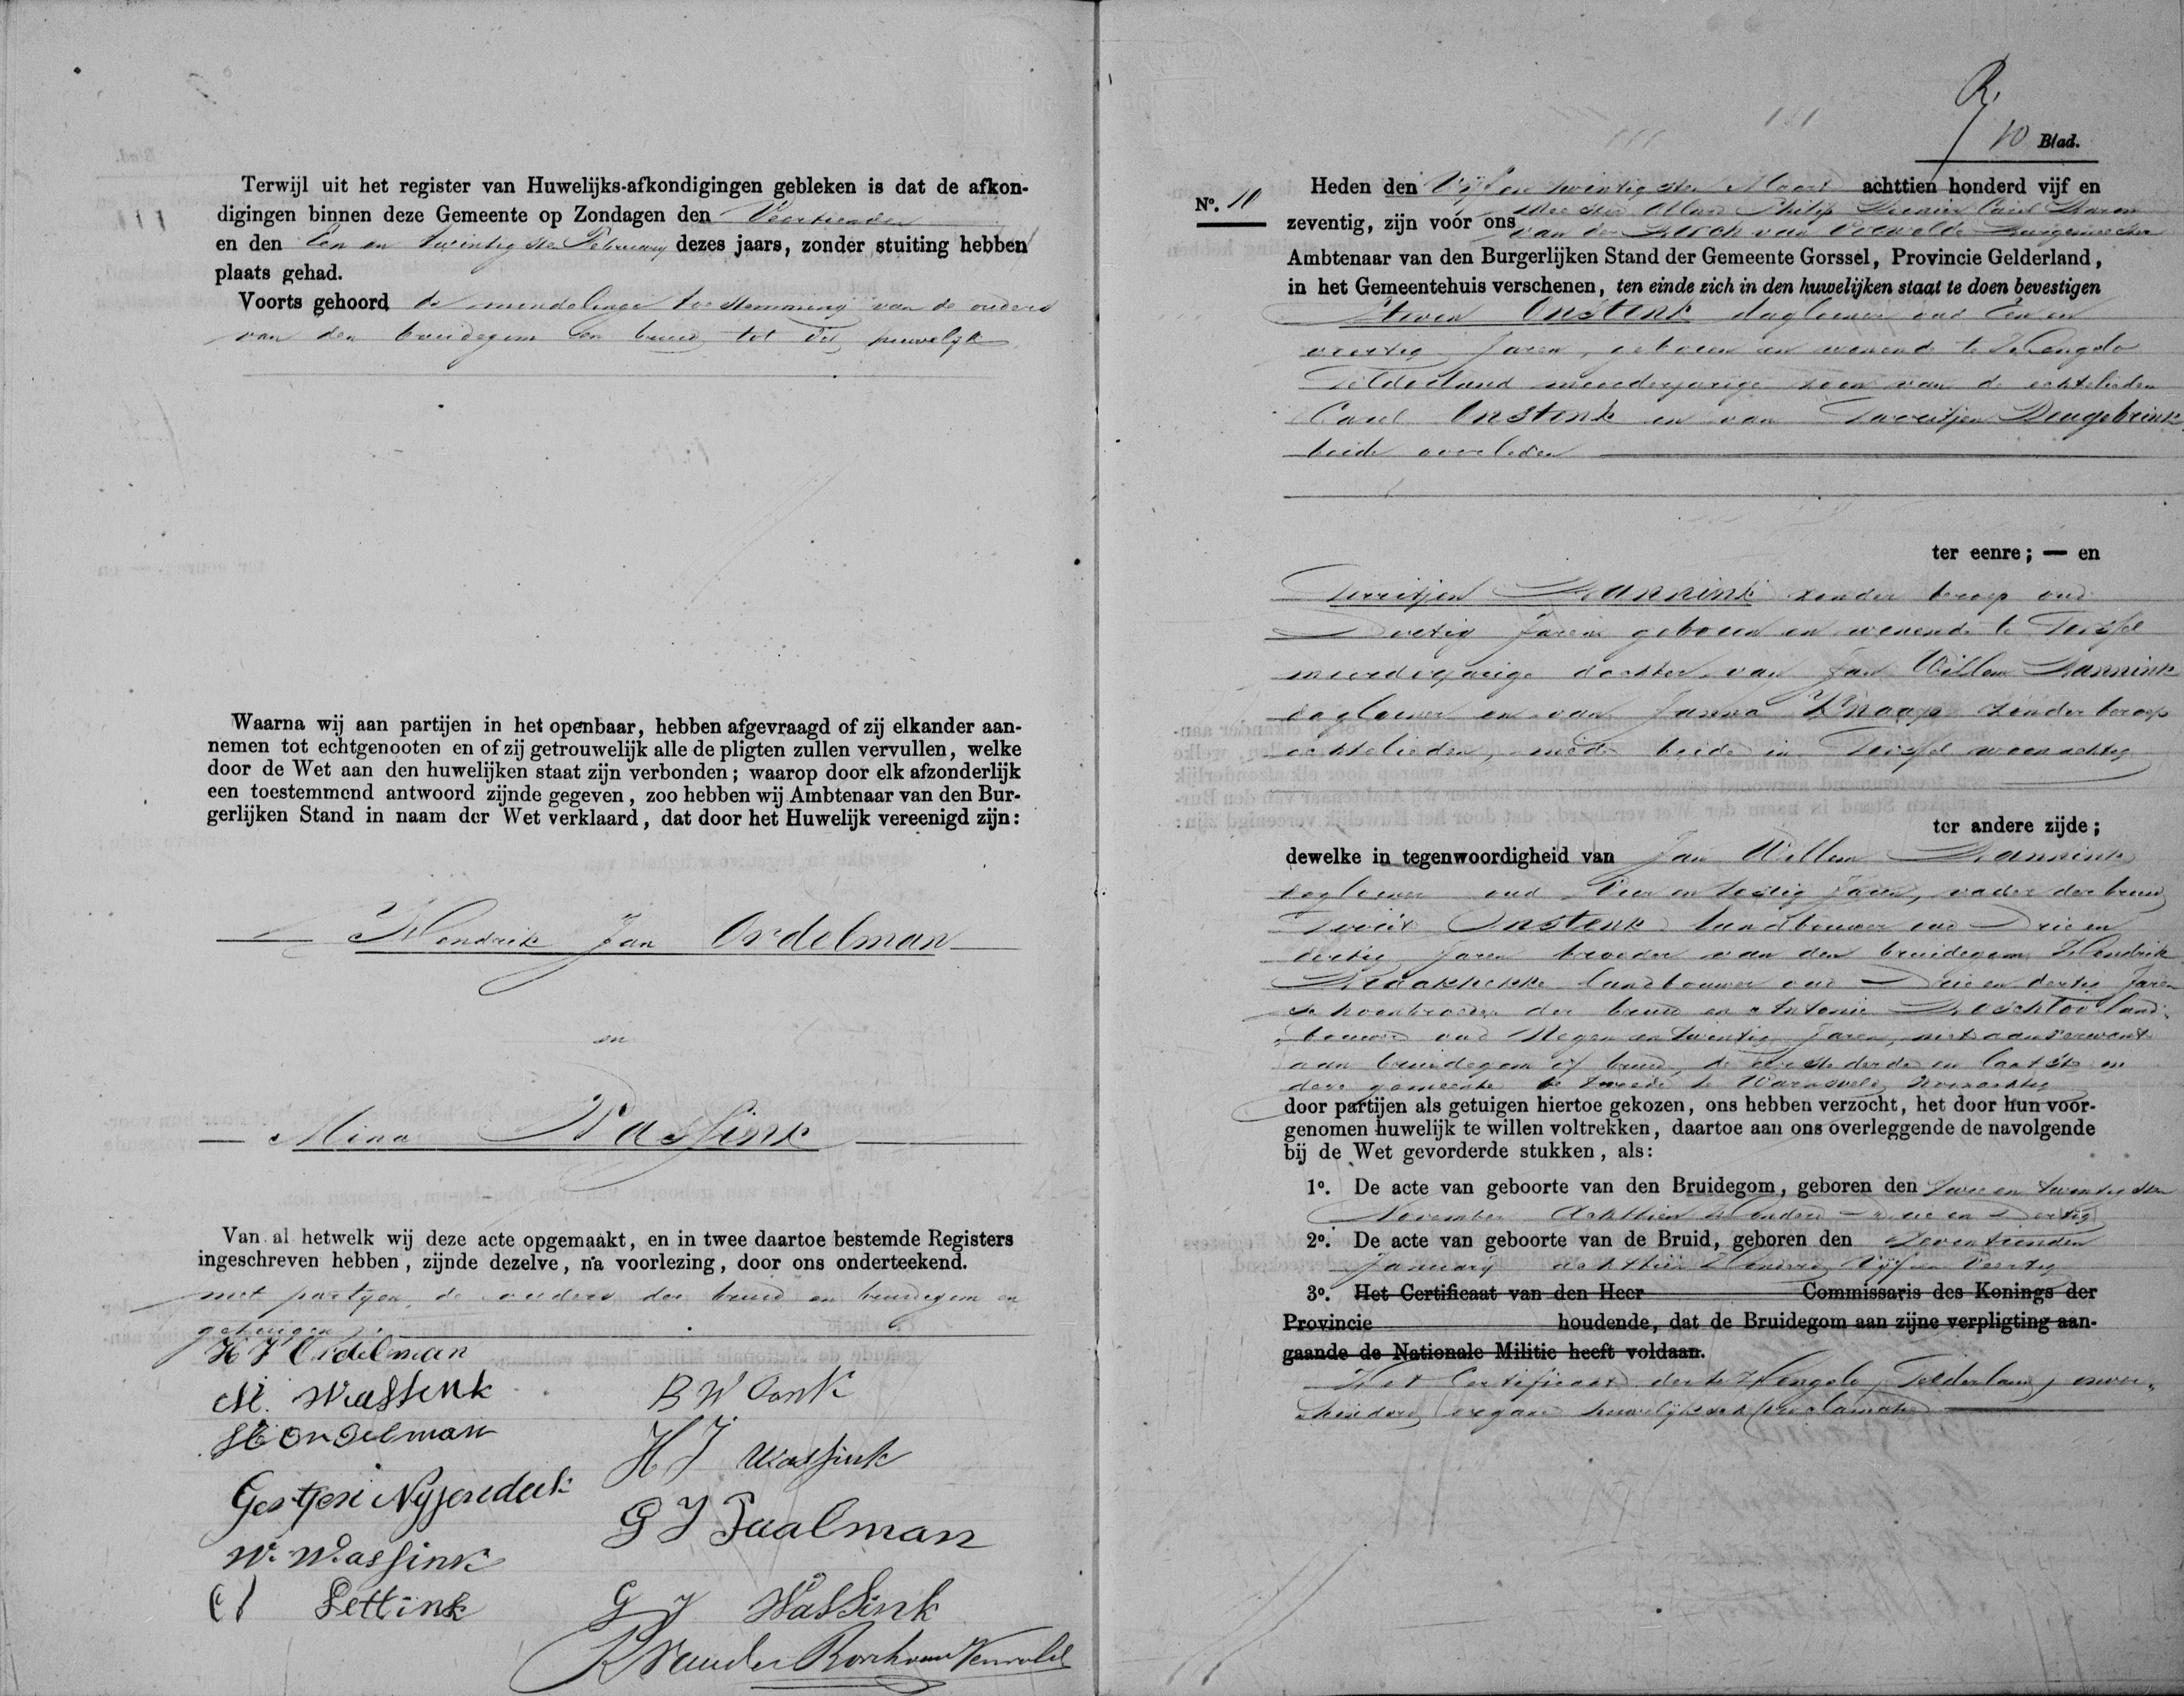 Terwijl uit het register van Huwelijks-afkondigingen gebleken is dat de afkon-
digingen binnen deze Gemeente op Zondagen den Veertienden
en den Een en twintigsten February dezes jaars, zonder stuiting hebben
plaats gehad.
Voorts gehoord de mondelinge toestemming van de ouders
van den bruidegom en bruid tot dit huwelijk
Waarna wij aan partijen in het openbaar, hebben afgevraagd of zij elkander aan-
nemen tot echtgenooten en of zij getrouwelijk alle de pligten zullen vervullen, welke
door de Wet aan den huwelijken staat zijn verbonden; waarop door elk afzonderlijk
een toestemmend antwoord zijnde gegeven, zoo hebben wij Ambtenaar van den Bur-
gerlijken Stand in naam der Wet verklaard, dat door het Huwelijk vereenigd zijn:
Hendrik Jan Ordelman
en
Mina Wassink
Van al hetwelk wij deze acte opgemaakt, en in twee daartoe bestemde Registers
ingeschreven hebben, zijnde dezelve, na voorlezing, door ons onderteekend.
met partijen, de ouders der bruid en bruidegom en
getuigen
H J Ordelman
M. Wassink
H Ordelman
Gertjen Nyjendeek
W. Wassink
Lettink
B W Oonk
H J Wassink
G J Paalman
G J Wassink
van der Borch van Verwolde
10 Blad.
No. 10
Heden den Vijf en twintigsten Maart achttien honderd vijf en
zeventig, zijn voor ons Meester Allard Philip Reinier Carel Baron
van der Borch van Verwolde Burgemeester
Ambtenaar van den Burgerlijken Stand der Gemeente Gorssel, Provincie Gelderland,
in het Gemeentehuis verschenen, ten einde zich in den huwelijken staat te doen bevestigen
Steven Onstenk daglooner oud Een en
veertig Jaren, geboren en wonende te Hengelo
Gelderland meerderjarige zoon van de echtelieden
Carel Onstenk en van Gerritjen Dengebrink
beide overleden
ter eenre; — en
Gerritjen Bannink zonder beroep oud
Dertig Jaren geboren en wonende te Gorssel
meerderjarige dochter van Jan Willem Bannink
daglooner en van Janna Knaap zonder beroep
echtelieden, mede beide in Gorssel woonachtig
ter andere zijde;
dewelke in tegenwoordigheid van Jan Willem Bannink
daglooner oud Vier en zestig Jaren, vader der bruid
Gerrit Onstenk landbouwer oud Drie en
dertig Jaren broeder van den bruidegom, Hendrik
Braakhekke landbouwer oud Drie en dertig Jaren
schoonbroeder der bruid en Antonie Boschloo land-
bouwer oud Negen en twintig Jaren, niet aanverwant
aan bruidegom of bruid, de eerste derde en laatste in
deze gemeente de tweede te Warnsveld woonachtig
door partijen als getuigen hiertoe gekozen, ons hebben verzocht, het door hun voor-
genomen huwelijk te willen voltrekken, daartoe aan ons overleggende de navolgende
bij de Wet gevorderde stukken, als:
1o. De acte van geboorte van den Bruidegom, geboren den twee en twintigsten
November Achttien Honderd Drie en Dertig
2o. De acte van geboorte van de Bruid, geboren den Zeventienden
January achttien Honderd Vijf en Veertig
3o. Het Certificaat van den Heer Commissaris des Konings der
Provincie houdende, dat de Bruidegom aan zijne verpligting aan-
gaande de Nationale Militie heeft voldaan.
Het Certificaat der te Hengelo, Gelderland, onver-
hinderd gegane huwelijksche proclamatie